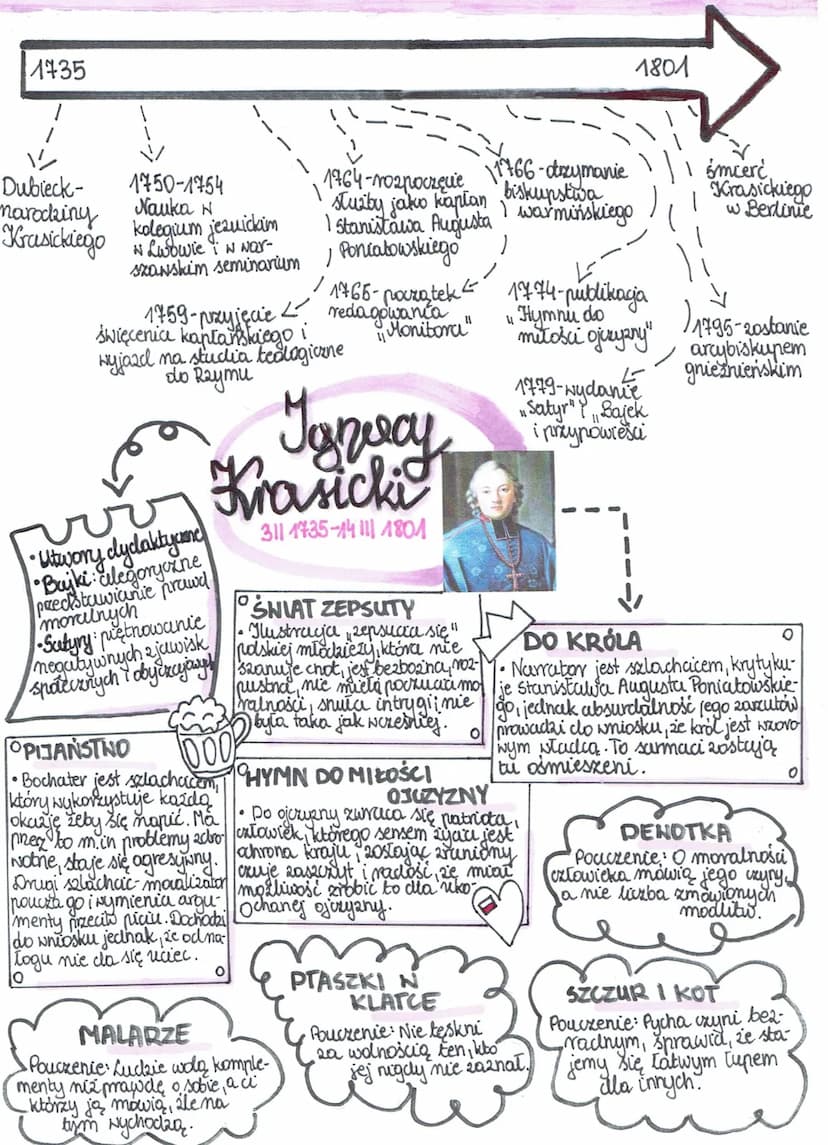 1735
1801
Dubieck-
narodziny
Krasickiego
1750-1754
Nauka w
kolegium jezuickim
w Lwowie i w war-
szawskim seminarium
1759-przyjęcie
święcenia kapłańskiego i
wyjazd na studia teologiczne
do Rzymu
1764-rozpoczęcie
służby jako kapłan
Stanisława Augusta
Poniatowskiego
1765-początek
redagowania
„Monitora"
1766-otrzymanie
biskupstwa
warmińskiego
1774-publikacja
„Hymnu do
miłości ojczyzny"
1779-wydanie
„Satyr" i „Bajek
i przypowieści
1795-zostanie
arcybiskupem
gnieźnieńskim
śmierć
Krasickiego
w Berlinie
Ignacy
Krasicki
3 II 1735-14 III 1801
• Utwory dydaktyczne
• Bajki: alegoryczne
przedstawianie prawd
moralnych
• Satyry: piętnowanie
negatywnych zjawisk
społecznych i obyczajowych
ŚWIAT ZEPSUTY
• Ilustracja „zepsucia się"
polskiej młodzieży, która nie
szanuje cnót, jest bezbożna, roz-
pustna, nie mieła poczucia mo
ralności, snuła intrygi; nie
była taka jak wcześniej.
DO KRÓLA
• Narrator jest szlachcicem, krytyku-
je Stanisława Augusta Poniatowskie-
go, jednak absurdalność jego zarzutów
prowadzi do wniosku, że król jest wzoro-
wym władcą. To sarmaci zostają
tu ośmieszeni.
PIJAŃSTWO
• Bochater jest szlachcicem,
który wykorzystuje każdą
okazję żeby się napić. Ma
przez to m.in problemy zdro
wotne, staje się agresywny.
Drugi szlachcic-moralizator
poucza go i wymienia argu-
menty przeciw piciu. Dochodzi
do wniosku jednak, że od na-
łogu nie da się uciec.
HYMN DO MIŁOŚCI
OJCZYZNY
• Do ojczyzny zwraca się patriota,
człowiek, którego sensem życia jest
ochrona kraju, zostając zraniony
czuje zaszczyt i radość, że miał
możliwość zrobić to dla uko-
chanej ojczyzny.
DEWOTKA
Pouczenie: O moralności
człowieka mówią jego czyny,
a nie liczba zmówionych
modlitw.
MALARZE
Pouczenie: Ludzie wolą komple-
menty niż prawdę o sobie, a ci
którzy ją mówią, źle na
tym wychodzą.
PTASZKI W
KLATCE
Pouczenie: Nie tęskni
za wolnością ten, kto
jej nigdy nie zaznał.
SZCZUR I KOT
Pouczenie: Pycha czyni bez-
radnym, sprawia, że sta-
jemy się łatwym łupem
dla innych.